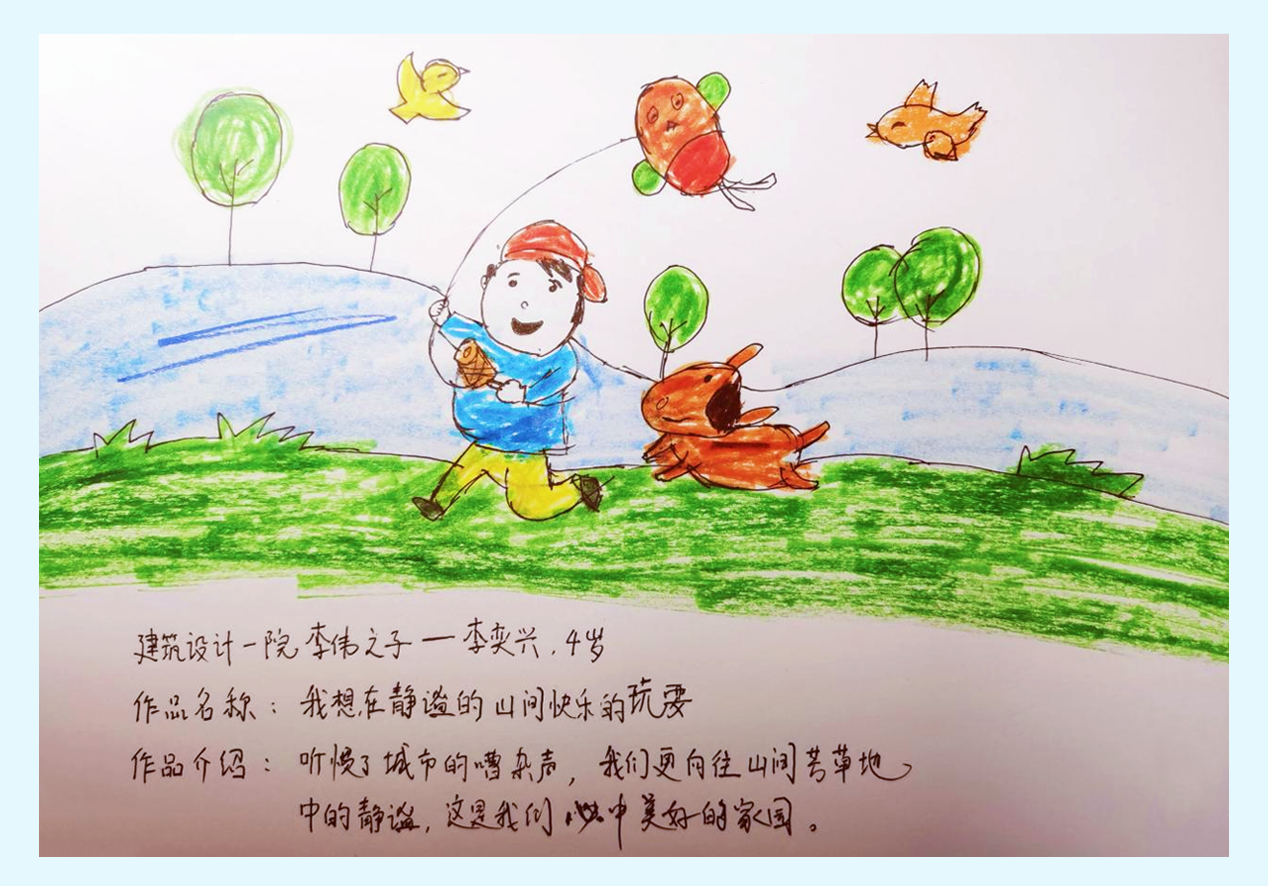 建筑设计一院 李伟之子 — 李奕兴，4岁
作品名称：我想在静谧的山间快乐的玩耍
作品介绍：听惯了城市的嘈杂声，我们更向往山间芳草地
中的静谧，这是我们心中美好的家园。